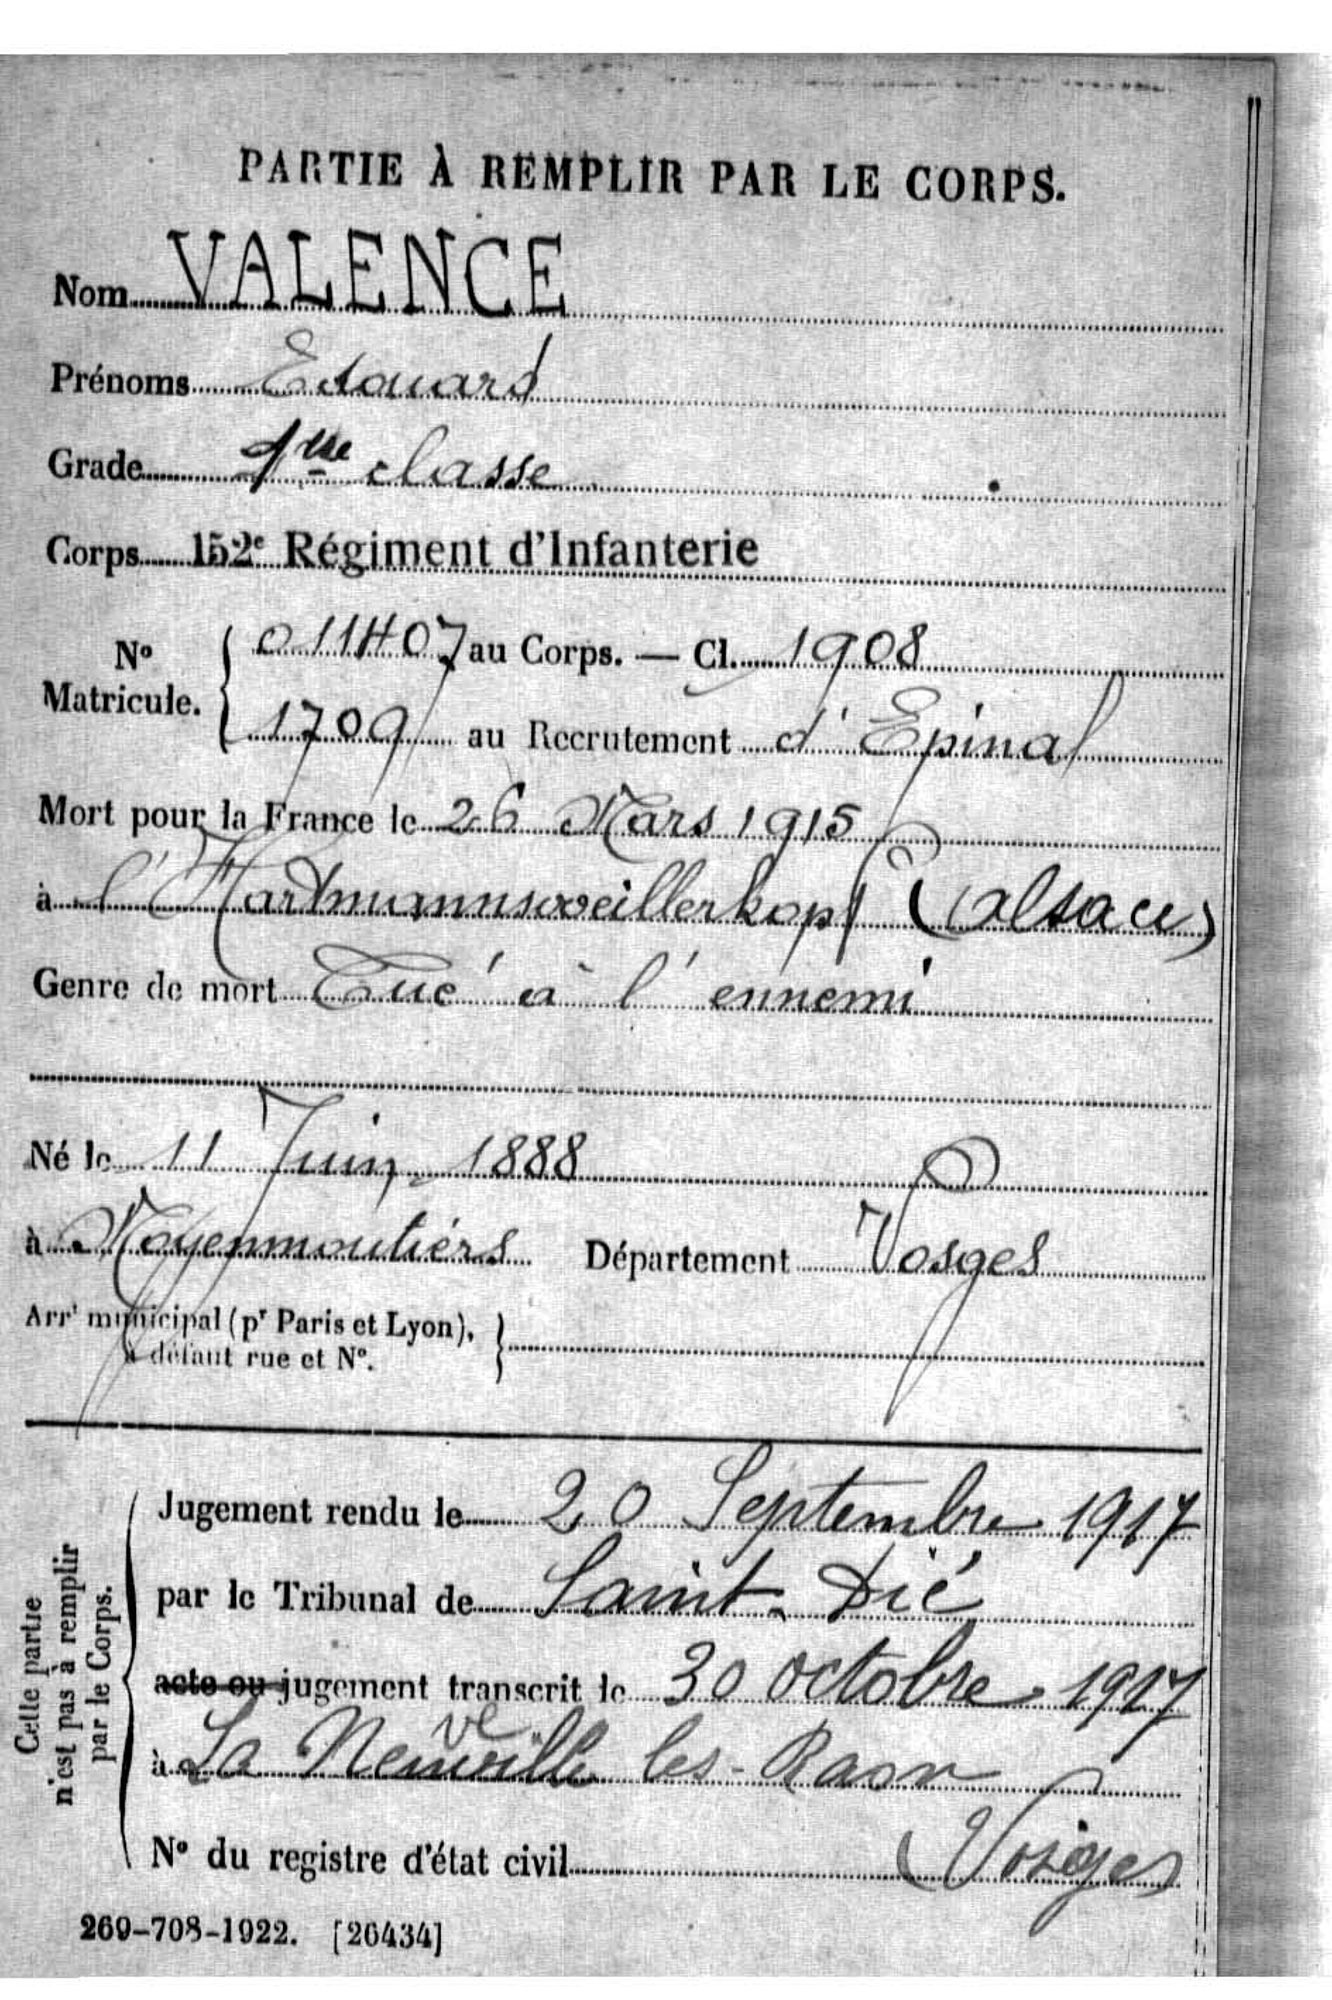 PARTIE À REMPLIR PAR LE CORPS.
Nom VALENCE
Prénoms Edouard
Grade 1re classe
Corps 152e Régiment d'Infanterie
No Matricule. { 011407 au Corps. — Cl. 1908
1709 au Recrutement d'Epinal
Mort pour la France le 26 Mars 1915
à l'Hartmannsweillerkopf (Alsace)
Genre de mort Tué à l'ennemi
Né le 11 Juin 1888
à Moyenmoutiérs Département Vosges
Arrt municipal (pr Paris et Lyon), }
à défaut rue et No.
Cette partie
n'est pas à remplir
par le Corps.
Jugement rendu le 20 Septembre 1917
par le Tribunal de Saint-Dié
acte ou jugement transcrit le 30 octobre 1917
à La Neuveville les-Raon
No du registre d'état civil (Vosges
269-708-1922. [26434]